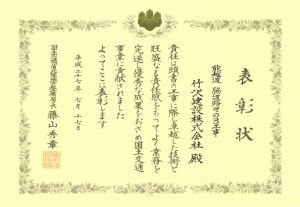 表彰状
能越道 脇道路その3工事
竹沢建設株式会社 殿
貴社は頭書の工事に際し卓越した技術と
旺盛なる責任感をもってよく業務を
完遂し優秀な成果をおさめ国土交通
事業に貢献されました
よってここに表彰します
平成二十七年七月十七日
藤山秀章